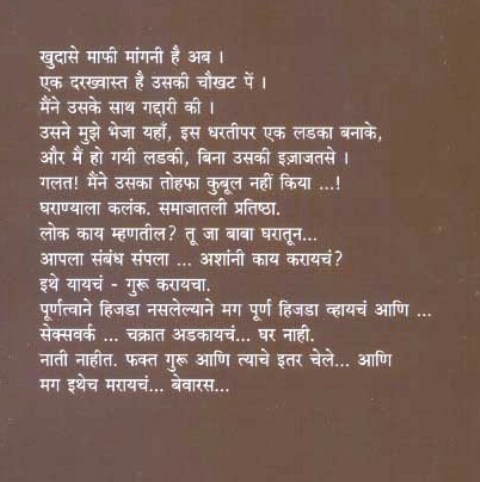 खुदासे माफी मांगनी है अब ।
एक दरख्वास्त है उसकी चौखट पें ।
मैंने उसके साथ गद्दारी की ।
उसने मुझे भेजा यहाँ, इस धरतीपर एक लडका बनाके,
और मैं हो गयी लडकी, बिना उसकी इज़ाजतसे ।
गलत! मैंने उसका तोहफा कुबूल नहीं किया ...!
घराण्याला कलंक. समाजातली प्रतिष्ठा.
लोक काय म्हणतील? तू जा बाबा घरातून...
आपला संबंध संपला ... अशांनी काय करायचं?
इथे यायचं - गुरू करायचा.
पूर्णत्वाने हिजडा नसलेल्याने मग पूर्ण हिजडा व्हायचं आणि ...
सेक्सवर्क ... चक्रात अडकायचं... घर नाही.
नाती नाहीत. फक्त गुरू आणि त्याचे इतर चेले... आणि
मग इथेच मरायचं... बेवारस...